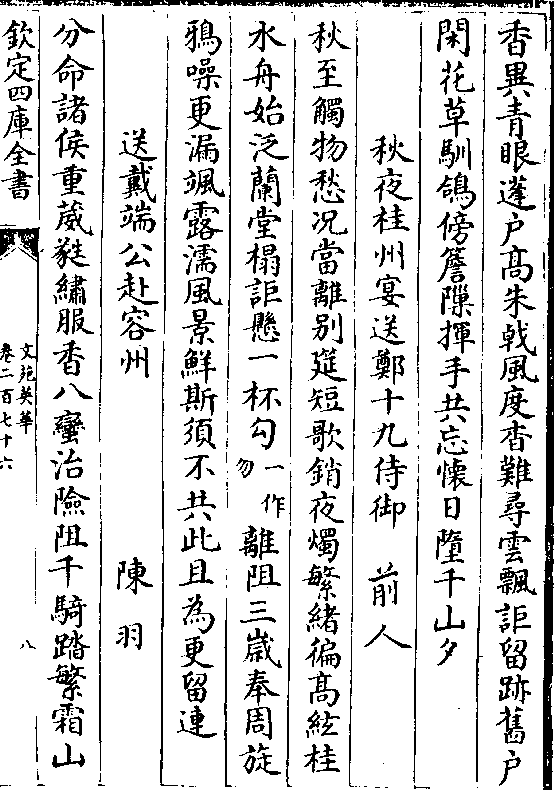 香異青眼蓬户髙朱㦸風度杳難尋雲飄詎留跡舊户
閑花草馴鴿傍簷隟揮手共忘懐日墮千山夕
秋夜桂州宴送鄭十九侍御 前人
秋至觸物愁况當離别筵短歌銷夜燭繁緒徧髙絃桂
水舟始泛蘭堂榻詎懸一杯勾一作勿離阻三歲奉周旋
鴉噪更漏颯露濡風景鮮斯須不共此且為更留連
送戴端公赴容州 陳羽
分命諸侯重葳蕤繡服香八蠻治險阻千騎踏繁霜山
欽定四庫全書
文苑英華
卷二百七十六
八